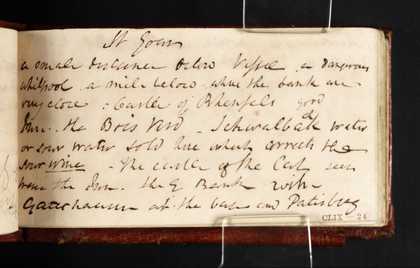 St Goar
a small distance below Vessel a dangerous
whirlpool a mile below where the bank are
very close Castle of Rhenfels good
Inn. the Bois Verd Schwalbak water
or sour water sold here which the
sour Wine. The castle of the Cat seen
from the Inn. the Bank with
at the base and
CLIX 24